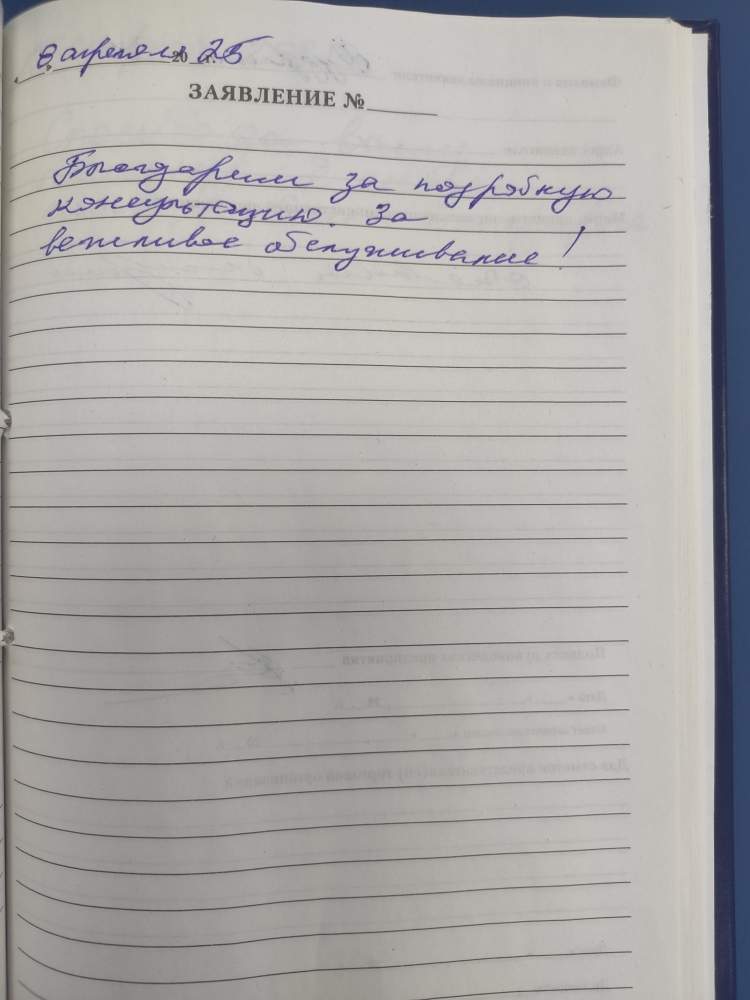 8 апреля 2025 г.
ЗАЯВЛЕНИЕ №
Благодарим за подробную
консультацию. За
вежливое обслуживание!